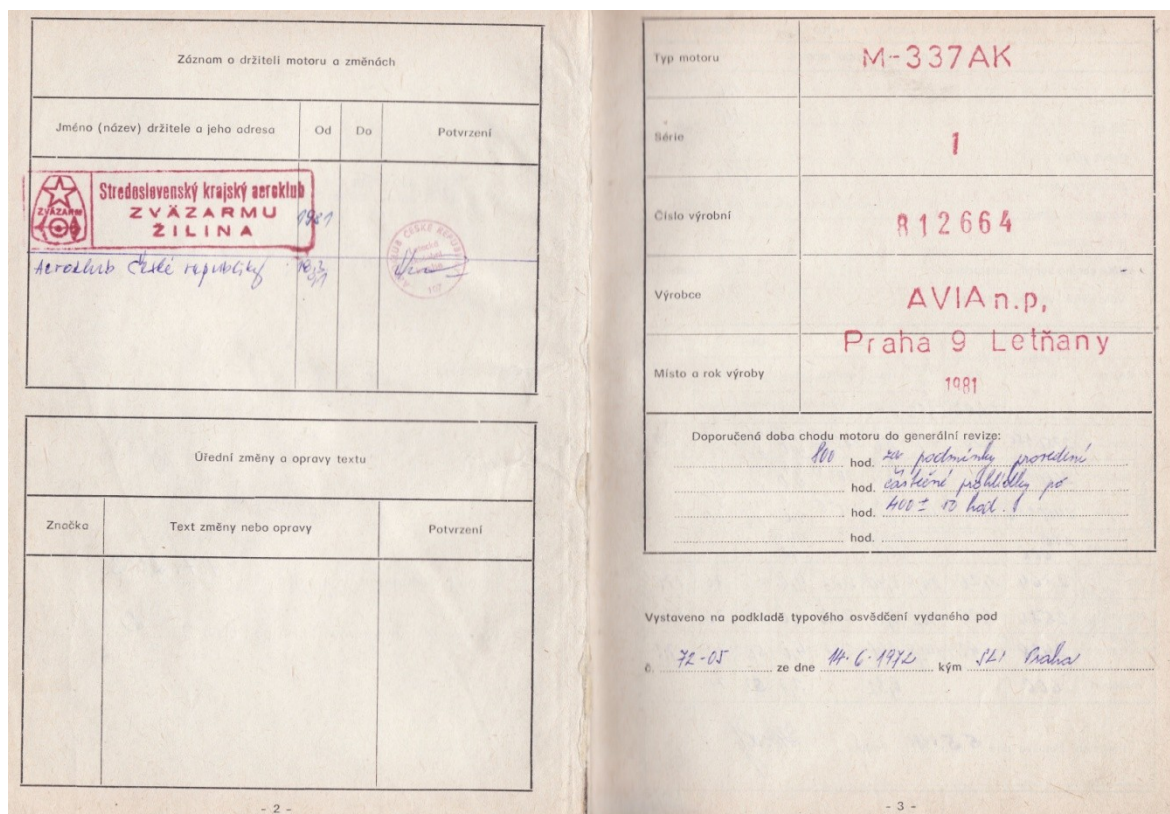 Záznam o držiteli motoru a změnách
Jméno (název) držitele a jeho adresa Od Do Potvrzení
Stredoslovenský krajský aeroklub
ZVÄZARMU
ŽILINA
ZVÄZARM
1981
Aeroklub České republiky
ČESKÉ REPUBLIKY
Úřední změny a opravy textu
Značka Text změny nebo opravy Potvrzení
- 2 -
Typ motoru M-337AK
Série 1
Číslo výrobní 812664
Výrobce AVIA n.p,
Praha 9 Letňany
Místo a rok výroby 1981
Doporučená doba chodu motoru do generální revize:
800 hod. za podmínky provedení
hod. částečné prohlídky po
hod. 400 ± 10 hod.
hod.
Vystaveno na podkladě typového osvědčení vydaného pod
č. 72-05 ze dne 14.6.1972 kým SLI Praha
- 3 -